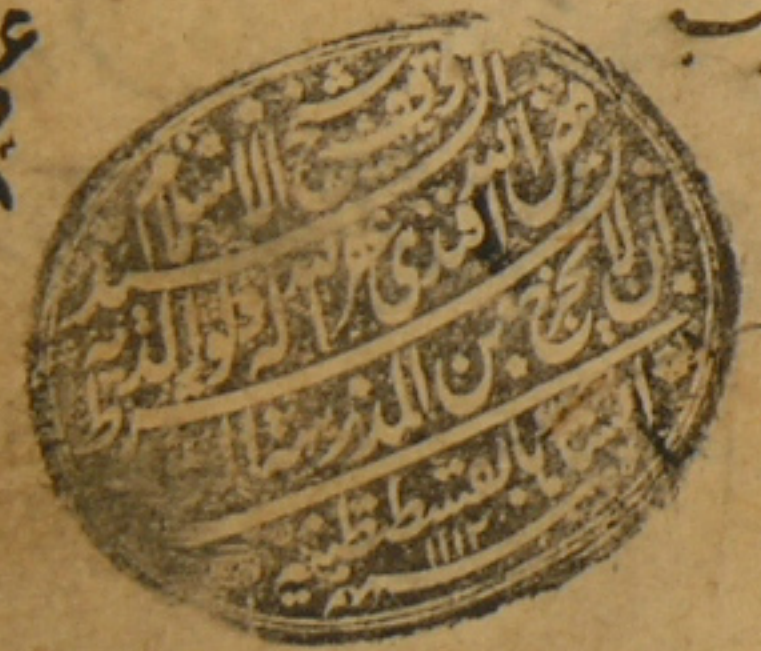 وقف شيخ الاسلام السيد
فيض الله افندى غفر الله له ولوالديه بشرط
ان لا يخرج من المدرسة التى
انشاها بقسطنطينيه
سنه ١١١٢